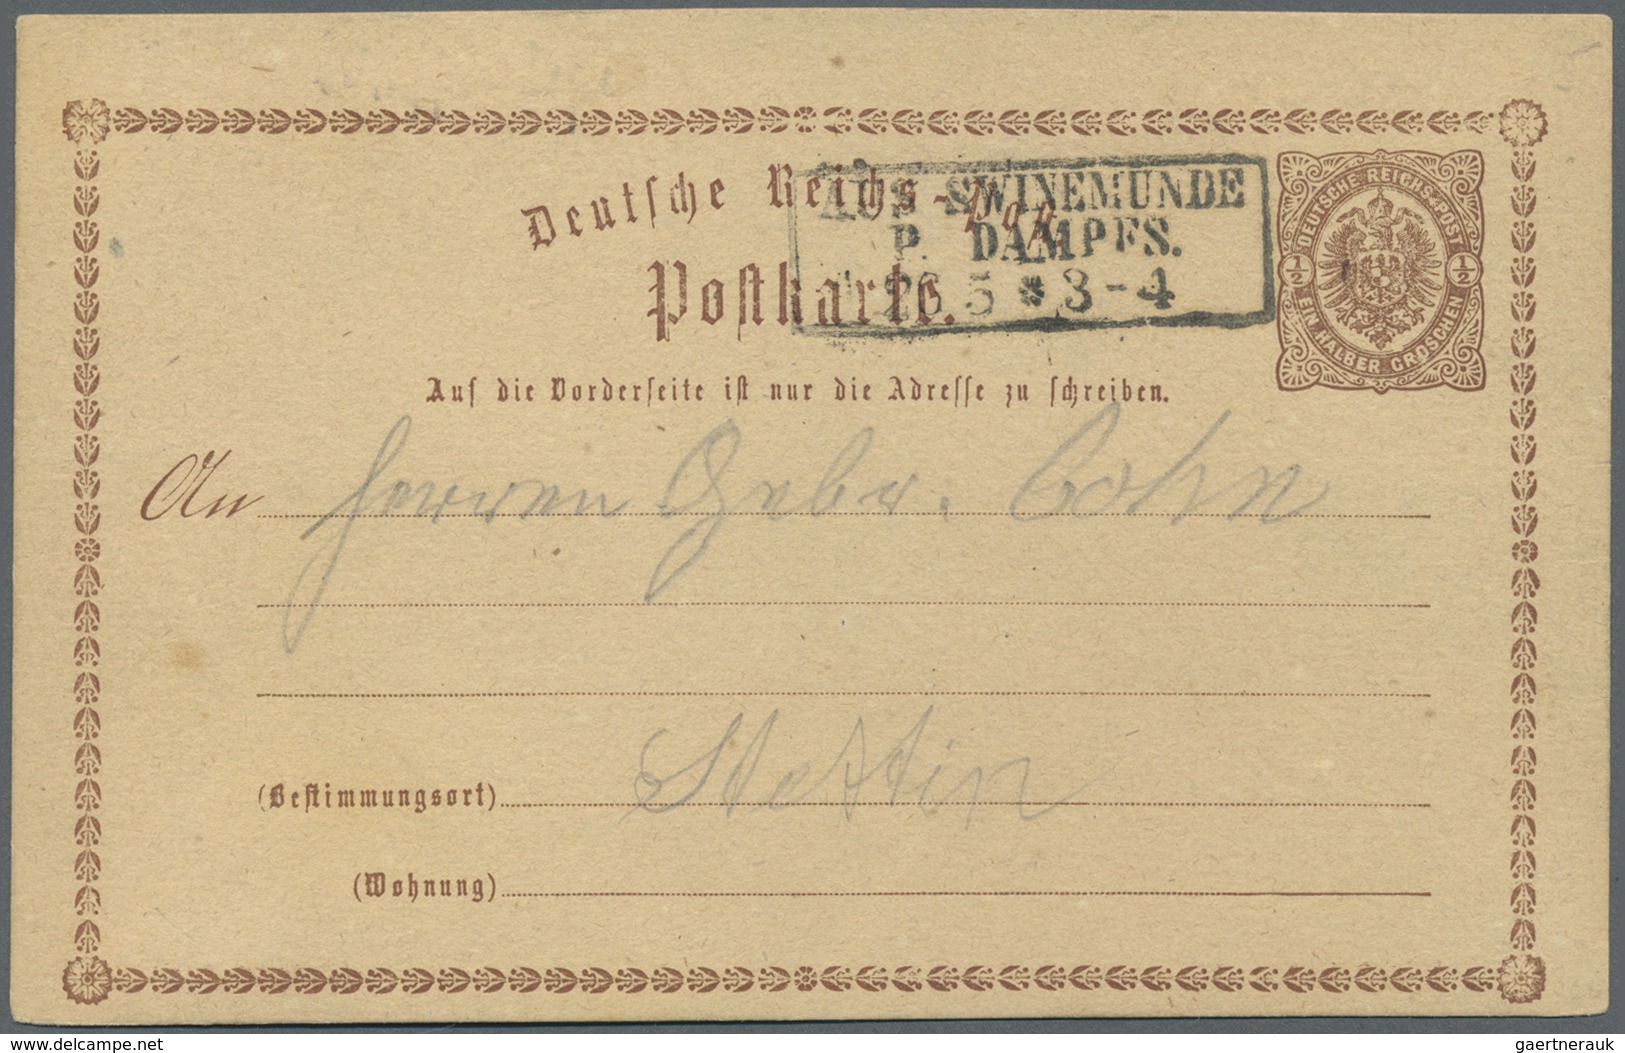 Deutsche Reichs-Post
AUS SWINEMÜNDE
P. DAMPFS.
26 5 * 3-4
Postkarte.
DEUTSCHE REICHS-POST
1/2 1/2
EIN HALBER GROSCHEN
Auf die Vorderseite ist nur die Adresse zu schreiben.
An Herren Gebr. Cohn
Stettin
(Bestimmungsort)
(Wohnung)
www.delcampe.net
gaertnerauk